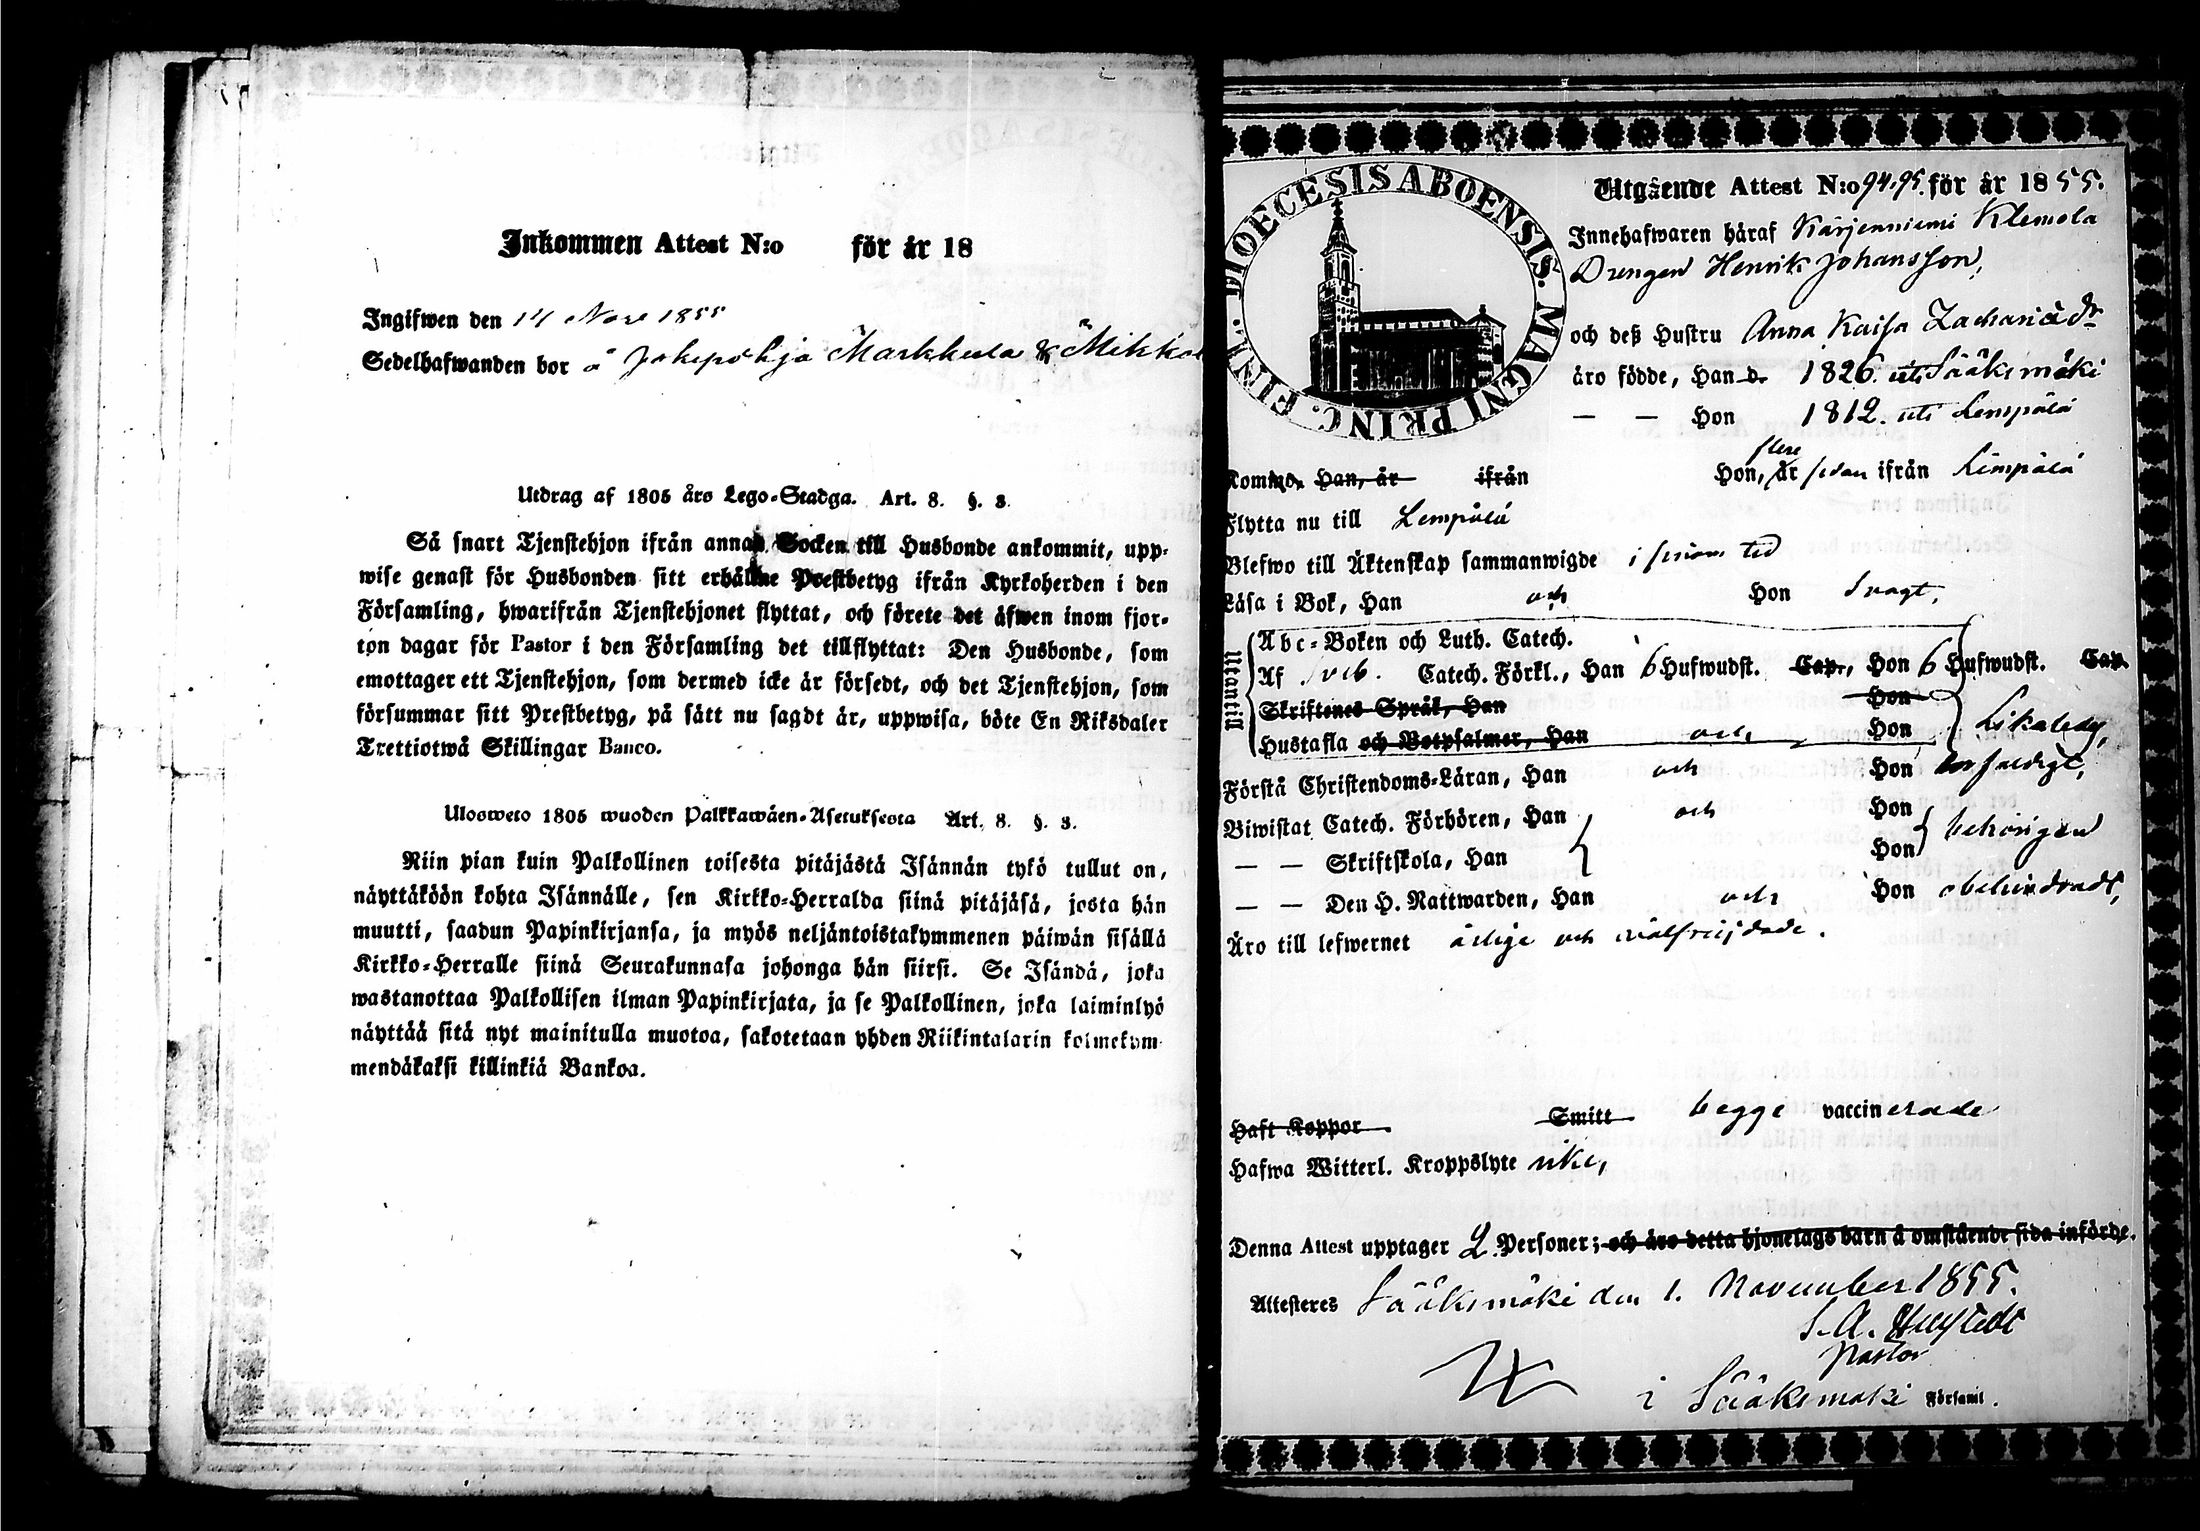 Inkommen Attest N:o för år 18
Ingifwen den 14 Nov 1855
Sedelhafwanden bor å Jokipohja Markkula & Mikkol
Utdrag af 1805 års Lego-Stadga. Art. 8. §. 3.
Så snart Tjenstehjon ifrån annan Socken till Husbonde ankommit, upp-
wise genast för Husbonden sitt erhållne Prestbetyg ifrån Kyrkoherden i den
Församling, hwarifrån Tjenstehjonet flyttat, och förete det äfwen inom fjor-
ton dagar för Pastor i den Församling det tillflyttat: Den Husbonde, som
emottager ett Tjenstehjon, som dermed icke är försedt, och det Tjenstehjon, som
försummar sitt Prestbetyg, på sätt nu sagdt är, uppwisa, böte En Riksdaler
Trettiotwå Skillingar Banco.
Ulosweto 1805 wuoden Palkkawäen-Asetuksesta Art. 8. §. 3.
Niin pian kuin Palkollinen toisesta pitäjästä Isännän tykö tullut on,
näyttäköön kohta Isännälle, sen Kirkko-Herralda siinä pitäjäsä, josta hän
muutti, saadun Papinkirjansa, ja myös neljäntoistakymmenen päiwän sisällä
Kirkko-Herralle siinä Seurakunnasa johonga hän siirsi. Se Isändä, joka
wastanottaa Palkollisen ilman Papinkirjata, ja se Palkollinen, joka laiminlyö
näyttää sitä nyt mainitulla muotoa, sakotetaan yhden Riikintalarin kolmekym
mendäkaksi killinkiä Bankoa.
DIOECESIS ABOENSIS. MAGNI PRINC. FINL.
Utgående Attest N:o 94.95. för år 1855.
Innehafwaren häraf Kärjenniemi Klemola
Drengen Henrik Johansson,
och deß Hustru Anna Kaisa Zachariædr
äro födde, Han d. 1826. uti Sääksmäki
— — Hon 1812. uti Lempälä
flere
Kommo, Han, år ifrån Hon, år sedan ifrån Lempälä
Flytta nu till Lempälä
Blefwo till Äktenskap sammanwigde i sinom tid
Läsa i Bok, Han och Hon svagt,
Utantill
Abc-Boken och Luth. Catech.
Af Sveb. Catech. Förkl., Han 6 Hufwudst. Cap., Hon 6 Hufwudst. Cap.
Skriftenes Språk, Han Hon
Hustafla och Botpsalmer, Han och Hon likaledes,
Förstå Christendoms-Läran, Han och Hon enfaldigt,
Biwistat Catech. Förhören, Han och Hon behörigen
— — Skriftskola, Han Hon
— — Den H. Nattwarden, Han och Hon obehindradt,
Äro till lefwernet ärlige och wälfrejdade.
Haft Koppor Smitt begge vaccinerade
Hafwa Witterl. Kroppslyte icke,
Denna Attest upptager 2 Personer; och äro detta hjonelags barn å omstående sida införde.
Attesteres Sääksmäki den 1. November 1855.
Pastor
i Sääksmäki Församl.